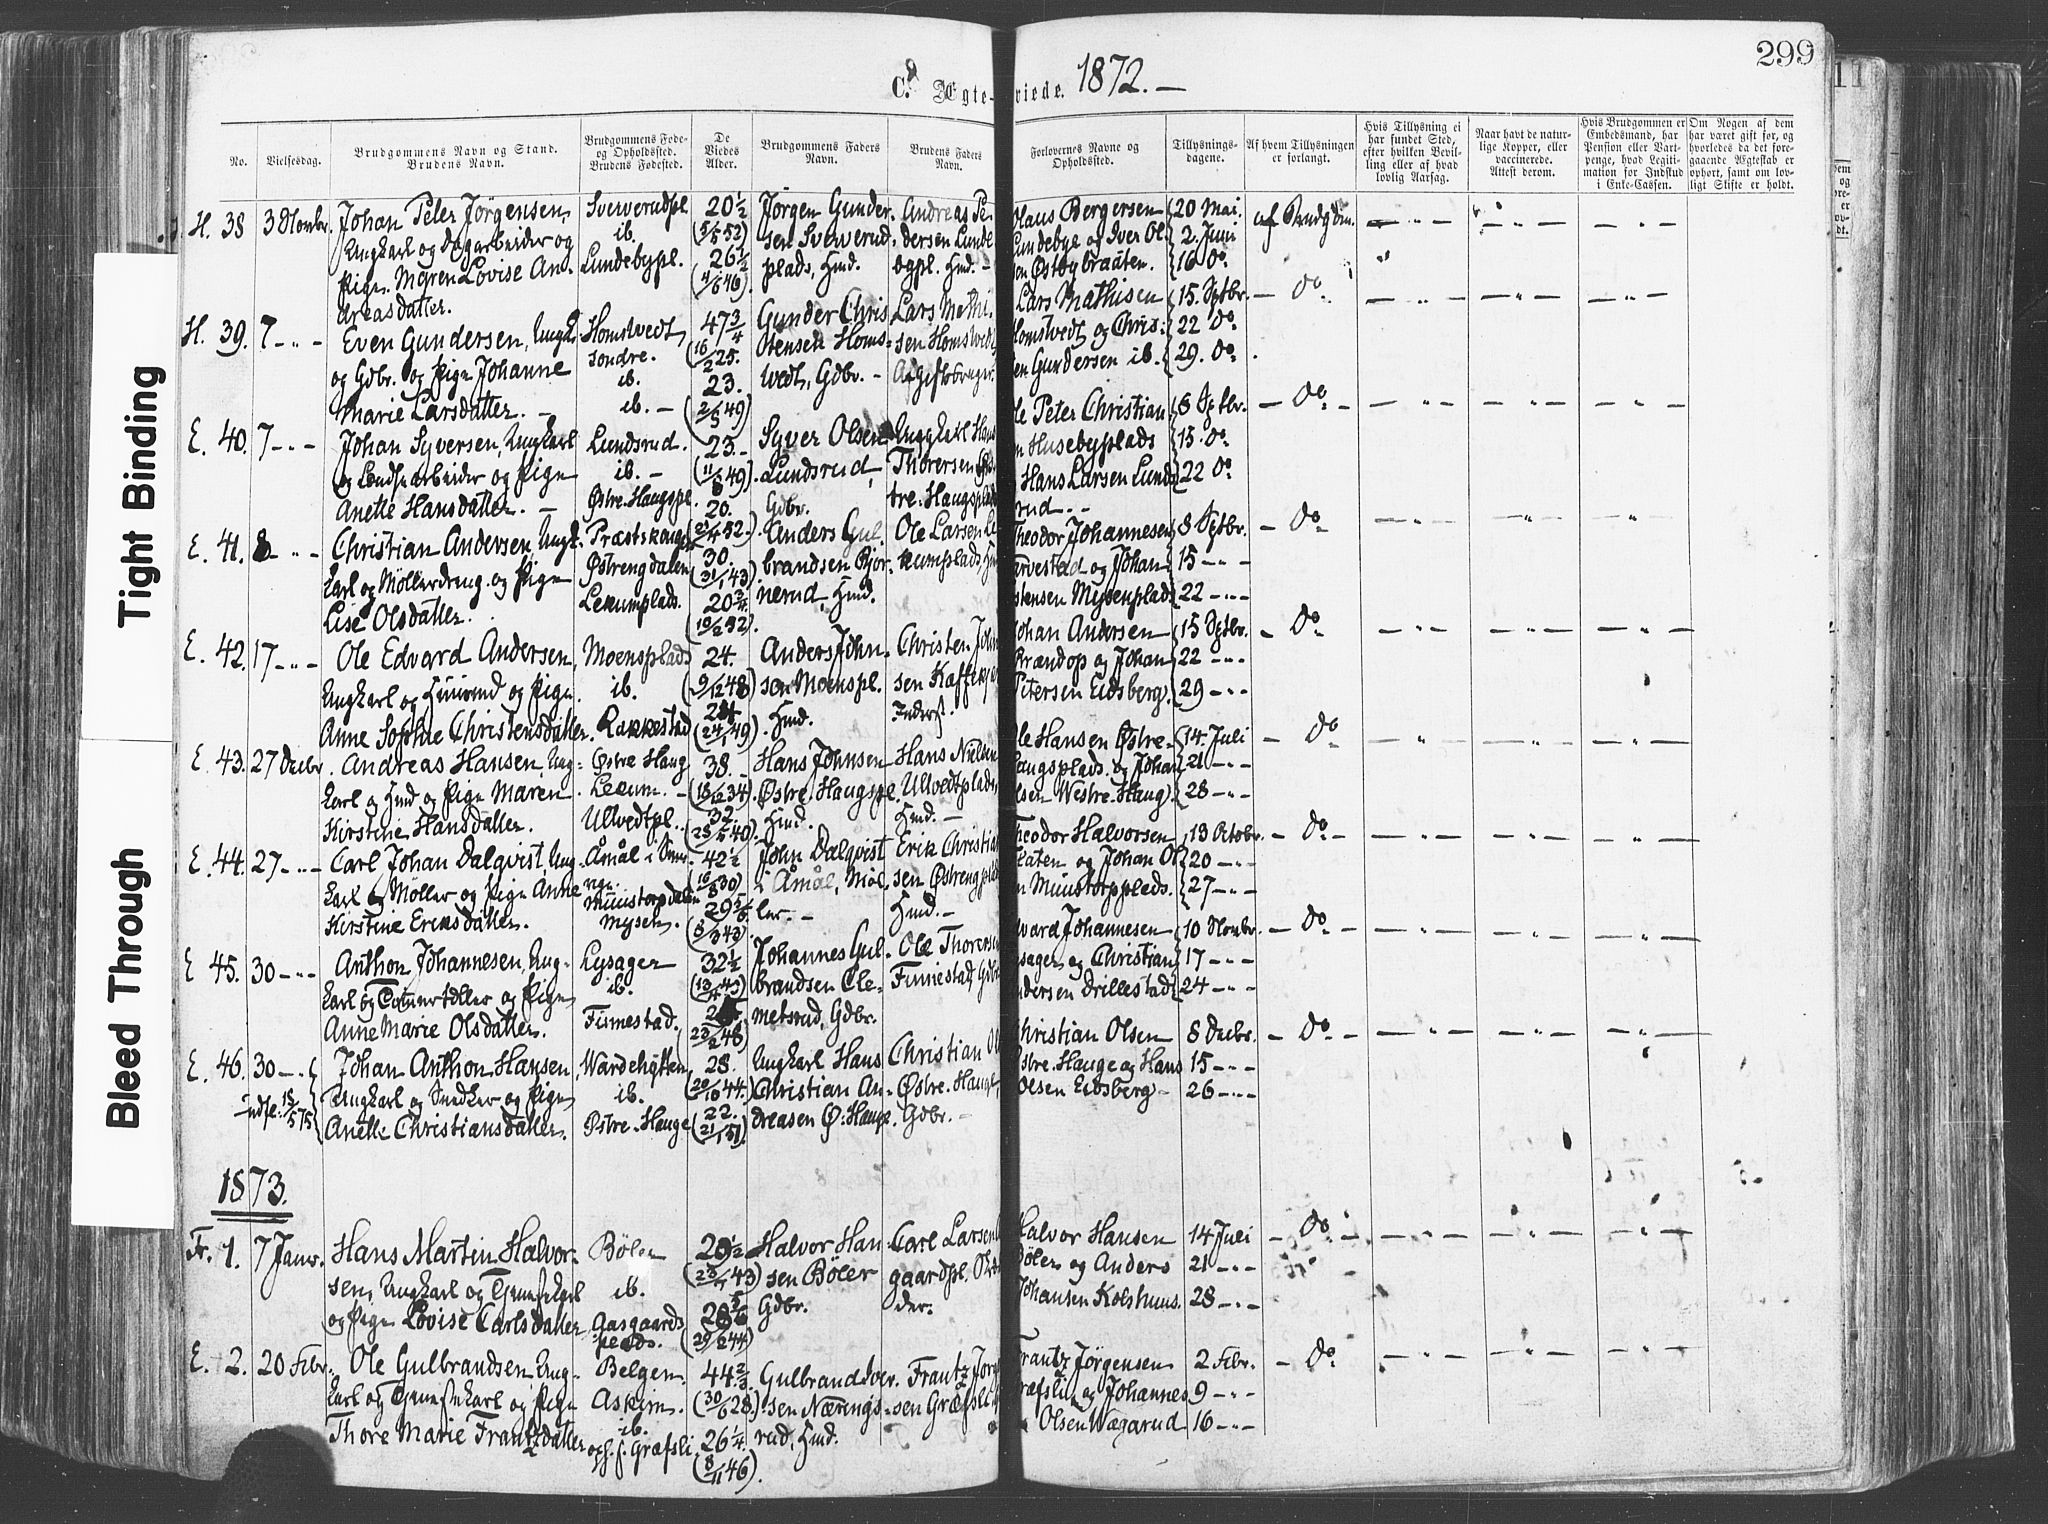 299
C. Ægteviede. 1872.
No.
Vielsesdag.
Brudgommens Navn og Stand.
Brudens Navn.
Brudgommens Føde-
og Opholdssted.
Brudens Fødested.
De
Viedes
Alder.
Brudgommens Faders
Navn.
Brudens Faders
Navn.
Forlovernes Navne og
Opholdssted.
Tillysnings-
dagene.
Af hvem Tillysningen
er forlangt.
Hvis Tillysning ei
har fundet Sted,
efter hvilken Bevil-
ling eller af hvad
lovlig Aarsag.
Naar havt de natur-
lige Kopper, eller
vaccinerede.
Attest derom.
Hvis Brudgommen er
Embedsmand, har
Pension eller Vart-
penge, hvad Legiti-
mation for Indskud
i Enke-Cassen.
Om Nogen af dem
har været gift før, og
hvorledes da det fore-
gaaende Ægteskab er
ophørt, samt om lov-
ligt Skifte er holdt.
H. 38
Johan Peter Jørgensen,
Ungkarl og Dagarbeider og
Pige Maren Lovise An-
dreasdatter.
ib.
Lundebypl.
20 1/2
26 1/2
Jørgen Gunder-
plads, Hmd.
Andreas Pe-
dersen Lunde-
Claus Bergersen
Lundebye og Iver Ol-
sen Østbybraaten.
20 Mai.
2 Juni
16 Do
af Brudgom.
H. 39. 7 - " -
Even Gundersen, Ungk
og Gdbr. og Pige Johanne
Marie Larsdatter.
Homstvedt
søndre.
ib.
ib.
47 3/4
23.
Gunder Chris
stensen Homs-
vedt, Gdbr.
Lars Mathi-
sen Homstvedt
Lars Mathisen
Homstvedt og Chris-
ten Gundersen ib.
15. Sptbr.
22 Do
29. Do
Do
E. 40. 7 - " -
Johan Syversen, Ungkarl
og Pige
Anette Hansdatter.
Lundsrud.
ib.
Østre-Haugspl.
23.
20.
Syver Olsen
Lundsrud,
Gdbr.
Ungkarl Hans
Thorersen Øs-
tre-Haugsplads
Ole Peter Christian
Husebyplads
Hans Larsen Lunds
rud.
8 Sptbr.
15. Do
22 Do
Do
E. 41. 8 - " -
Christian Andersen, Ung-
karl og Møllerdreng og Pige
Lise Olsdatter.
Østrengdalen
Lekumplads.
30.
(31/1 43)
20 3/4
Anders Gul-
brandsen Bjør-
nerud, Hmd.
Ole Larsen Le
kumplads,
Theodor Johannesen
og Johan
Mysenplads
8 Sptbr.
15 - " -
22 - " -
Do
E. 42. 17 - " -
Ole Edvard Andersen,
Ungkarl og Huusmd og Pige
Anne Sophie Christensdatter.
Moensplads
ib.
Rakkestad
24.
(9/12 48)
(24/1 49)
Anders John-
sen Moenspl.
Hmd.
Christen John
Inderst.
Johan Andersen
Brændop og Johan
Petersen Eidsberg.
15 Sptbr.
22 - " -
29 - " -
Do
E. 43. 27 Decbr.
Andreas Hansen, Ung-
karl og Hmd og Pige Maren
Kirstine Hansdatter.
Østre Haug
Lekum.
Ullvedtpl.
38.
(18/12 34)
32.
Hans Johnsen
Østre Haugspl
Hmd.
Hans Nielsen
Ullvedtplads,
Hmd.
Ole Hansen Østre-
Haugsplads og Johan
Olsen Westre-Haug.
14. Juli
21 - " -
28 - " -
Do
E. 44. 27 - " -
Carl Johan Dalqvist, Ung-
karl og Møller og Pige Anne
Kirstine Eriksdatter.
Åmål i Sve-
rige.
Mysen.
42 1/2
29 5/6
(8/3 43)
John Dalqvist
i Åmål, Møl-
ler.
Erik Christian
sen Østrengplds
Hmd.
Theodor Halvorsen
og Johan Ol
13 Octobr.
20 - " -
27 - " -
Do
E 45. 30 - " -
Anthon Johannesen, Ung-
karl og Tømmermand og Pige
Anne Marie Olsdatter.
Lysager
ib.
Finnestad.
32 1/2
Johannes Gul-
brandsen Cle-
metsrud, Gdbr.
Ole Thorersen
Finnestad, Gdbr
Edvard Johannesen
Lysager og Christian
Andersen Drillestad
10 Novbr.
17 - " -
24 - " -
Do
E. 46. 30 - " -
Johan Anthon Hansen,
Ungkarl og Snedker og Pige
Anette Christiansdatter.
Wardehytten
ib.
Østre-Hauge
28.
(20/10 44.)
22.
(21/1 51)
Ungkarl Hans
Christian An-
dreasen Ø. Haugs
Christian Ol
Østre-Haug,
Gdbr.
Christian Olsen
Østre-Hauge og Hans
Olsen Eidsberg
8 Decbr.
15 - " -
26 - " -
Do
1873.
Fr. 1. 7 Janr.
Hans Martin Halvor-
sen, Ungkarl og Tjenestekarl
og Pige Lovise Carlsdatter
Bøler
ib.
Aasgaards
plads.
29 1/2
28 5/6
(29/2 44)
Halvor Han-
sen Bøler
Gdbr.
Carl Larsen
gaardpl.
Halvor Hansen
Bøler og Anders
Johansen Kolshuus.
14 Juli
21 - " -
28 - " -
Do
E. 2. 20 Febr.
Ole Gulbrandsen Ung-
karl og Tjenestekarl og Pige
Thore Marie Frantzdatter
Belgen.
Askim.
ib.
oph. f. Græfsli
44 2/3
(30/6 28)
26 1/4
(8/11 46)
Gulbrand Iver-
sen Nærings-
rud, Hmd.
Frantz Jørg
sen Græfsli
Frantz Jørgensen
Græfsli og Johannes
Olsen Wægarud
2 Febr.
9 - " -
16 - " -
Do
Tight Binding
Bleed Through